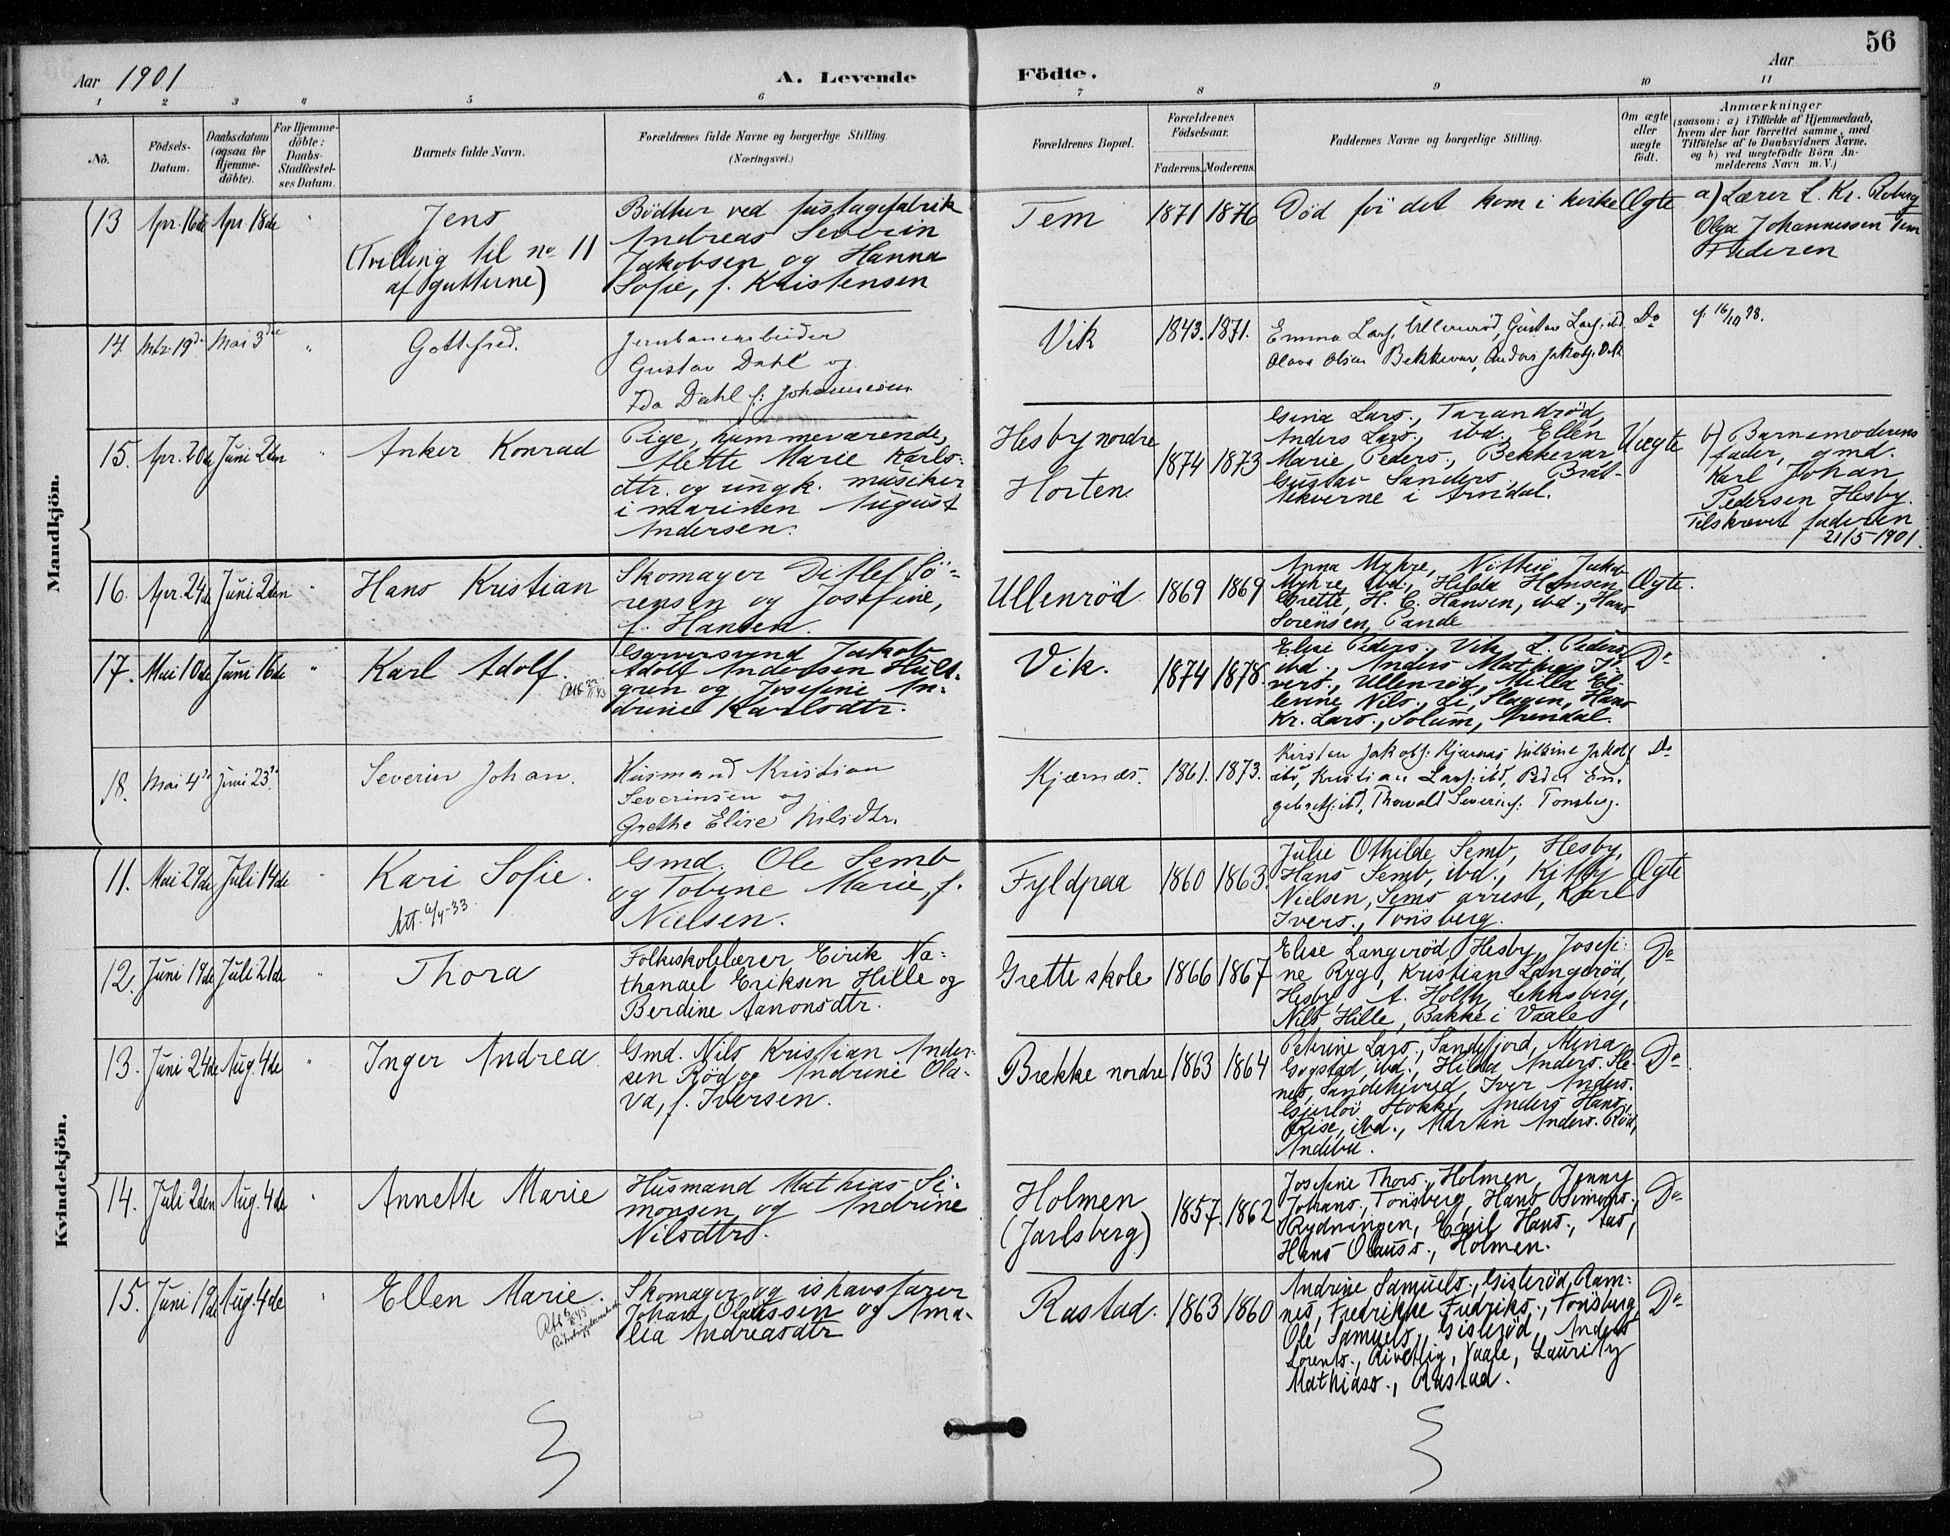 56
Aar 1901
A. Levende
Födte.
Aar
1 2 3 4 5 6 7 8 9 10 11
No.
Födsels-
Datum.
Daabsdatum
(ogsaa for
Hjemme-
döbte).
For Hjemme-
döbte:
Daabs-
Stadfæstel-
ses Datum.
Barnets fulde Navn.
Forældrenes fulde Navne og borgerlige Stilling.
(Næringsvei.)
Forældrenes Bopæl.
Forældrenes
Födselsaar.
Faderens. Moderens.
Faddernes Navne og borgerlige Stilling.
Om ægte
eller
uægte
födt.
Anmærkninger
(saasom: a) i Tilfælde af Hjemmedaab,
hvem der har forrettet samme, med
Tilföielse af to Daabsvidners Navne,
og b) ved uægtefödte Börn An-
melderens Navn m. V.)
Mandkjön.
13 Apr. 16de Apr 18de "
Jens
(Tvilling til no 11
af gutterne)
Bödker ved fustagefabrik
Andreas Severin
Jakobsen og Hanna
Sofie, f. Kristensen
Tem 1871 1876
Död för det kom i kirke
Ægte
a) Lærer L. Kr. Roberg
Olga Johannessen Tem
Faderen
14. 19de Mai 3die "
Gottfred.
Jernbanearbeider
Gustav Dahl og
Ida Dahl f: Johannesen
Vik 1843. 1871.
Emma Lars. Ullenröd, Gustav Lars. ibd
Olava Olsen Bekkevar, Anders Jakobs. Vik
Do
16/10 98.
15. Apr. 20de Juni 2den "
Anker Konrad
Pige, hjemmeværende,
Alette Marie Karls-
dtr. og ungk. musiker
i marinen August
Andersen.
Hesby nordre
Horten.
1874 1873
Gina Lars., Tarandröd,
Anders Lars., ibd., Ellen
Marie Peders., Bekkevar
Gustav Sanders., Brat-
tekverne i Arndal.
Uægte
b) Barnemoderens
fader, gmd.
Karl Johan
Pedersen Hesby.
Tilskrevet faderen
21/5-1901.
16. Apr. 24de Juni 2den "
Hans Kristian
Skomager Ditlef Sö-
rensen og Josefine,
f. Hansen.
Ullenröd 1869 1869
Anna Myhre, Nötterö, Jakob
Myhre, ibd., Hilda Hansen
Grette, H. C. Hansen, ibd., Hans
Sörensen, Pande
Ægte.
17. Mai 10de Juni 16de "
Karl Adolf.
Garversvend Jakob
Adolf Andersen Hult-
gren og Josefine An-
drine Karlsdtr.
Vik. 1874 1878.
Elise Peders., Vik, L. Peders.
ibd., Anders Mathias I-
vers., Ullenröd, Milla El-
levine Nils., Li, Slagen, Hans
Kr. Lars., Solum, Arendal.
Do
18. Mai 4de Juni 23de
Severin Johan.
Husmand Kristian
Severinsen og
Grethe Elise Nilsdtr.
Kjærnæs. 1861. 1873.
Kirsten Jakobs: Kjærnæs, Nilsine Jakobs
ibd, Kristian Lars: ibd, Peder En-
gebrets: ibd, Thorvald Severins: Tonsberg.
Do
Kvindekjön.
11. Mai 29de Juli 14de "
Kari Sofie.
Att. 6/4-33.
Gmd. Ole Semb
og Tobine Marie, f.
Nielsen.
Fyldpaa 1860 1863.
Julie Othilde Semb, Hesby,
Hans Semb, ibd., Kitty
Nielsen, Sems arrest, Karl
Ivers., Tönsberg.
Ægte
12. Juni 19de Juli 21de "
Thora
Folkeskolelærer Eirik Na-
thanael Eriksen Hille og
Berdine Aanonsdtr.
Grette skole 1866 1867
Elise Langeröd, Hesby, Josefi-
ne Ryg, Kristian Langeröd,
Hesby, A. Holth, Lehnsberg,
Nils Hille, Bakke i Vaale
Do
13. Juni 24de Aug. 4de "
Inger Andrea
Gmd. Nils Kristian Ander-
sen Röd og Andrine Ola-
va, f. Iversen.
Brekke nordre 1863 1864
Petrine Lars., Sandefjord, Mina
Gogstad, ibd., Hilda Anders. Ile-
nes, Sandeherred, Iver Anders.
Gjerlöi Stokke, Anders Hans.,
Rise, ibd., Martin Anders. Röd,
Andebu.
Do
14. Juli 2den Aug. 4de "
Annette Marie
Husmand Mathias Si-
monsen og Andrine
Nilsdtr.
Holmen
(Jarlsberg)
1857. 1862
Josefine Thors., Holmen, Jenny
Johans., Tönsberg, Hans Simons.,
Rydningen, Emil Hans., Aas,
Hans Olauss., Holmen.
Do
15. Juni 19de Aug. 4de
Ellen Marie.
Skomager og ishavsfarer
Johan Olaussen og Ama-
lia Andreasdtr
Rastad. 1863 1860
Andrine Samuels., Gisleröd, Ram-
nes, Fredrikke Fredriks., Tönsberg,
Ole Samuels., Gisleröd, Anders
Lorents., Vaale, Laurits
Mathiass., Rastad.
Do